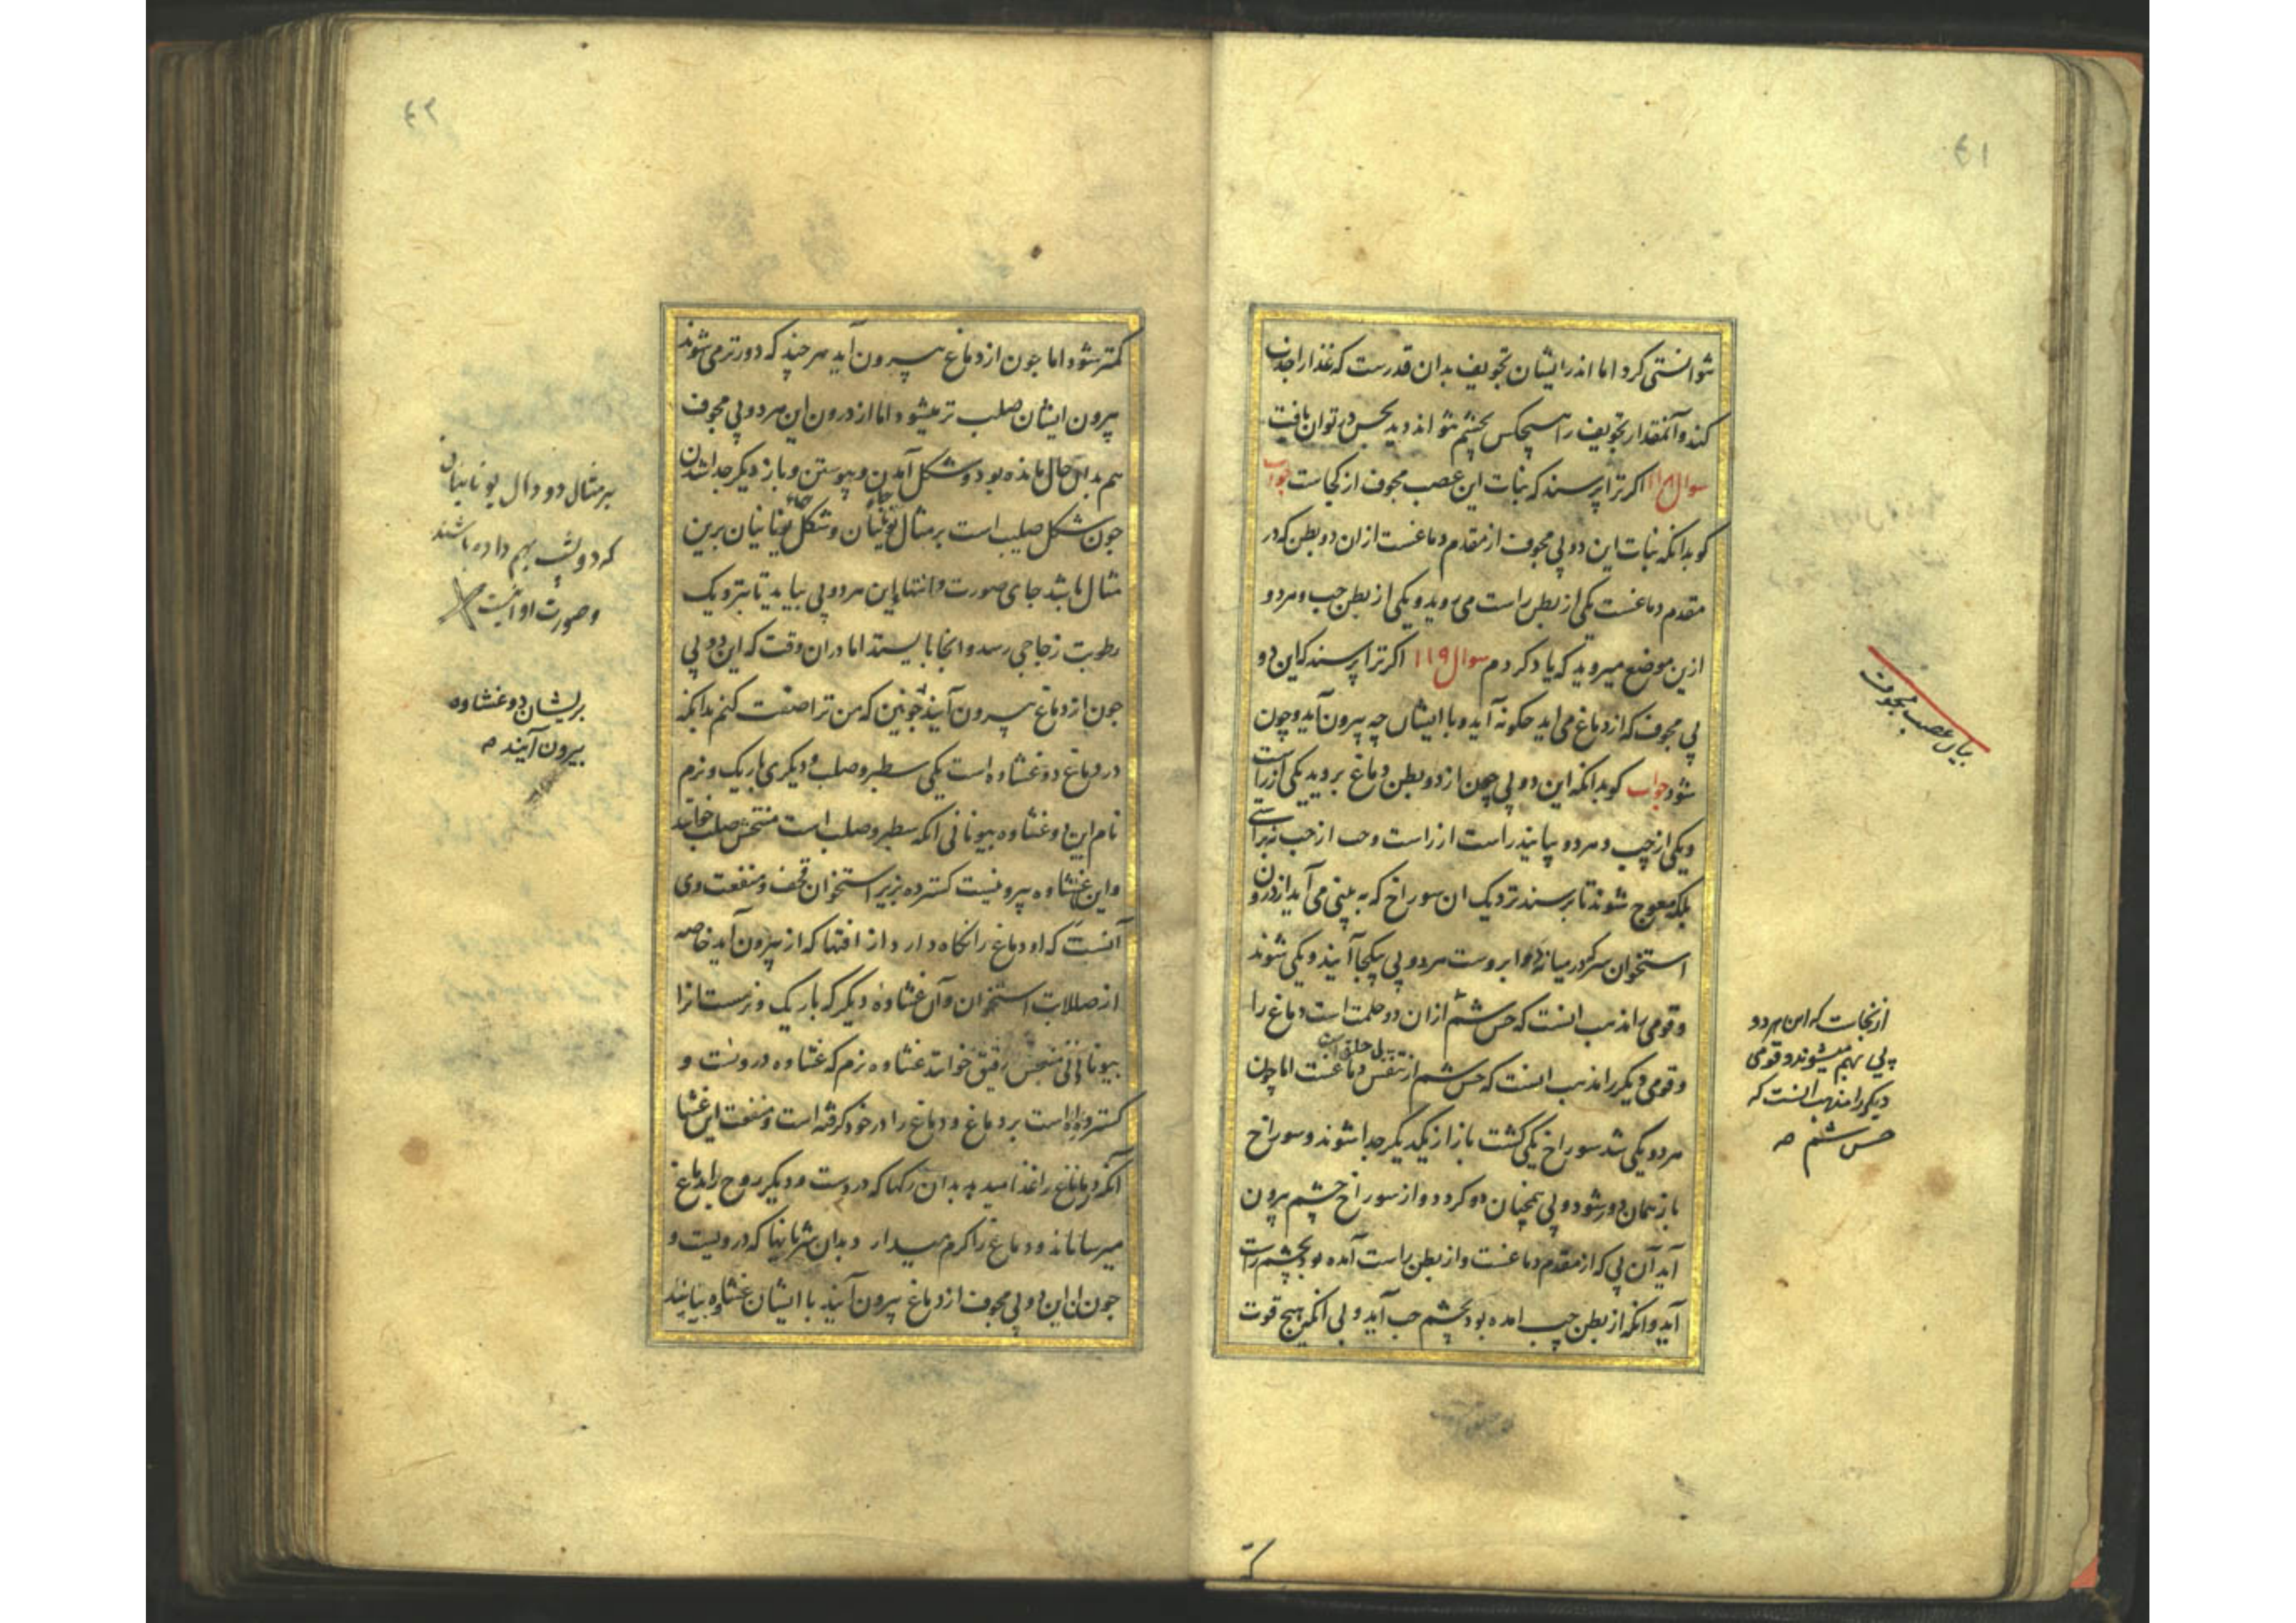 ۶۱
توانستی کرد اما اندر ایشان تجویف بدان قدرست که غذا را جذب
کند و آنمقدار تجویف را هیچکس بچشم نتواند دید بحس در توان یافت
سوال ۱۱۸ اکر ترا پرسند که نبات این عصب مجوف از کجاست جواب
کو بدانکه نبات این دو پی مجوف از مقدم دماغست از ان دو بطن که در
مقدم دماغست یکی از بطن راست می روید و یکی از بطن چپ و هر دو
ازین موضع میروید که یاد کردم سوال ۱۱۹ اکر ترا پرسند که این دو
پی مجوف که از دماغ می اید چکونه آید و با ایشان چه بیرون آید و چون
شود جواب کو بدانکه این دو پی چون از دو بطن دماغ بروید یکی از راست
و یکی از چپ و هر دو بیایند راست از راست و چپ از چپ نه براستی
بلکه معوج شوند تا برسند نزدیک ان سوراخ که به بینی می آید از درون
استخوان سر که در میانه دو ابروست هر دو پی بیکجا آیند و یکی شوند
و قومی را مذهب انست که حس شم از ان دو حلمت است دماغ را
و قومی دیکر را مذهب انست که حس شم از تنفس دماغست اما چون
هر دو یکی شد سوراخ یکی کشت باز از یکدیکر جدا شوند و سوراخ
باز همان دور شود دو پی همچنان دو کردد و از سوراخ چشم بیرون
آید آن پی که از مقدم دماغست و از بطن راست آمده بود بچشم راست
آید و انکه از بطن چپ امده بود بچشم چپ آید و پی انکه هیچ قوت
بیان عصب مجوف
از نجاست که این هر دو
پی بهم میشوند و قومی
دیکر را مذهب انست که
حس شم
۶۲
کمتر شود اما چون از دماغ بیرون آید هر چند که دورتر می شوند
بیرون ایشان صلب تر میشود اما از درون این هر دو پی مجوف
هم بدان حال مانده بود و شکل آمدن و پیوستن و باز دیکر جدا شدن
چون شکل صلیب است بر مثال یونانیان و شکل یونانیان برین
مثال باشد جای صورت و انتهای این هر دو پی بیاید تا بنزدیک
رطوبت زجاجی رسد و انجا بایستند اما دران وقت که این دو پی
چون از دماغ بیرون آیند چونین که من ترا صفت کنم بدانکه
در دماغ دو غشاوه است یکی سطبر و صلب و دیکری باریک و نرم
نام این دو غشاوه بیونانی انکه سطبر و صلب است منحس صلب خوانند
و این غشاوه بیرونیست کسترده بزیر استخوان قحف و منفعت وی
آنست که او دماغ را نکاه دارد از افتها که از بیرون آید خاصه
از صلابت استخوان و آن غشاوه دیکر که باریک و نرمست انرا
بیونانی منحس رقیق خوانند غشاوه نرم که غشاوه درونست و
کسترده است بر دماغ و دماغ را در خود کرفته است و منفعت این غشا
آنکه دماغ را غذا میدهد بدان رکها که دروست و دیکر روح را بدماغ
میرساناند و دماغ را کرم میدارد بدان شریانها که درویست و
چون ان این دو پی مجوف از دماغ بیرون آیند با ایشان غشاوه بیایند
بر مثال دو دال یونانیان
که دو پشت بهم داده باشند
و صورت او اینست
بریشان دو غشاوه
بیرون آیند